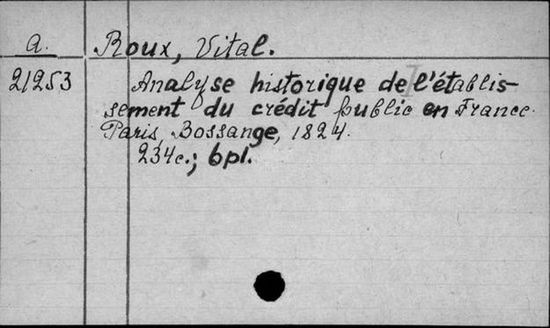 a. Roux, Vital.
21253 Analyse historique de l'établis-
sement du crédit public en France.
Paris, Bossange, 1824.
234c.; 6pl.